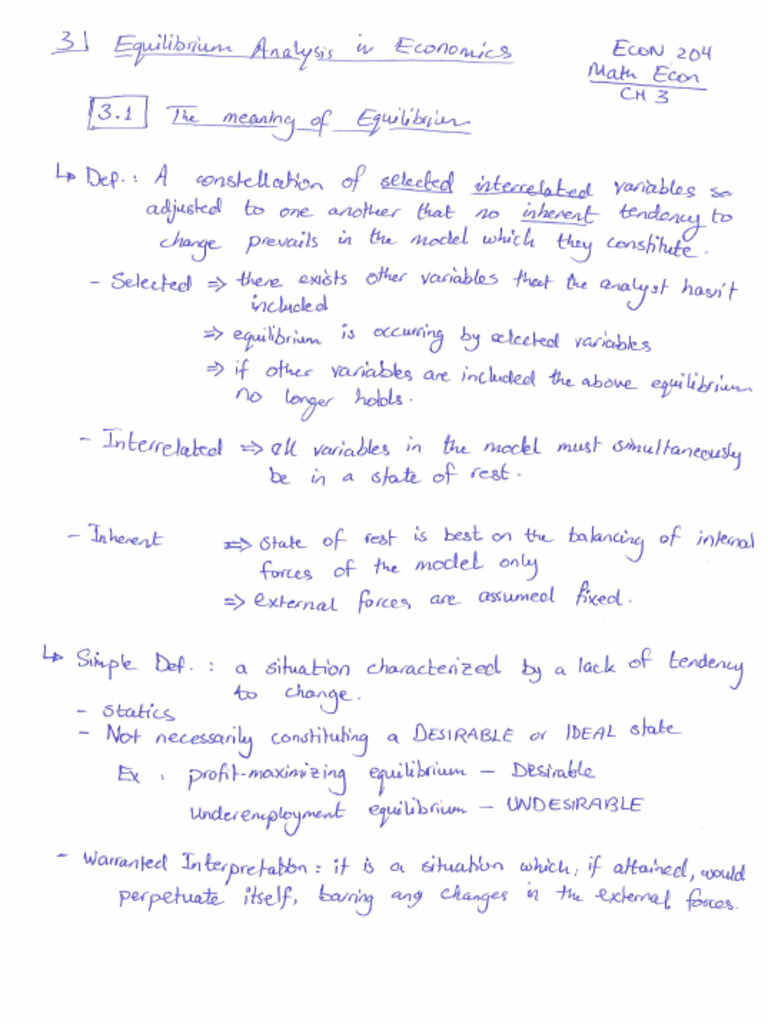 3| Equilibrium Analysis in Economics
ECON 204
Math Econ
CH 3
3.1 The meaning of Equilibrium
↳ Def.: A constellation of selected interrelated variables so
adjusted to one another that no inherent tendency to
change prevails in the model which they constitute.
- Selected ⇒ there exists other variables that the analyst hasn't
included
⇒ equilibrium is occurring by selected variables
⇒ if other variables are included the above equilibrium
no longer holds.
- Interrelated ⇒ all variables in the model must simultaneously
be in a state of rest.
- Inherent ⇒ state of rest is best on the balancing of internal
forces of the model only
⇒ external forces are assumed fixed.
↳ Simple Def. : a situation characterized by a lack of tendency
to change.
- Statics
- Not necessarily constituting a DESIRABLE or IDEAL state
Ex : profit-maximizing equilibrium – Desirable
Underemployment equilibrium – UNDESIRABLE
- Warranted Interpretation: it is a situation which, if attained, would
perpetuate itself, barring any changes in the external forces.